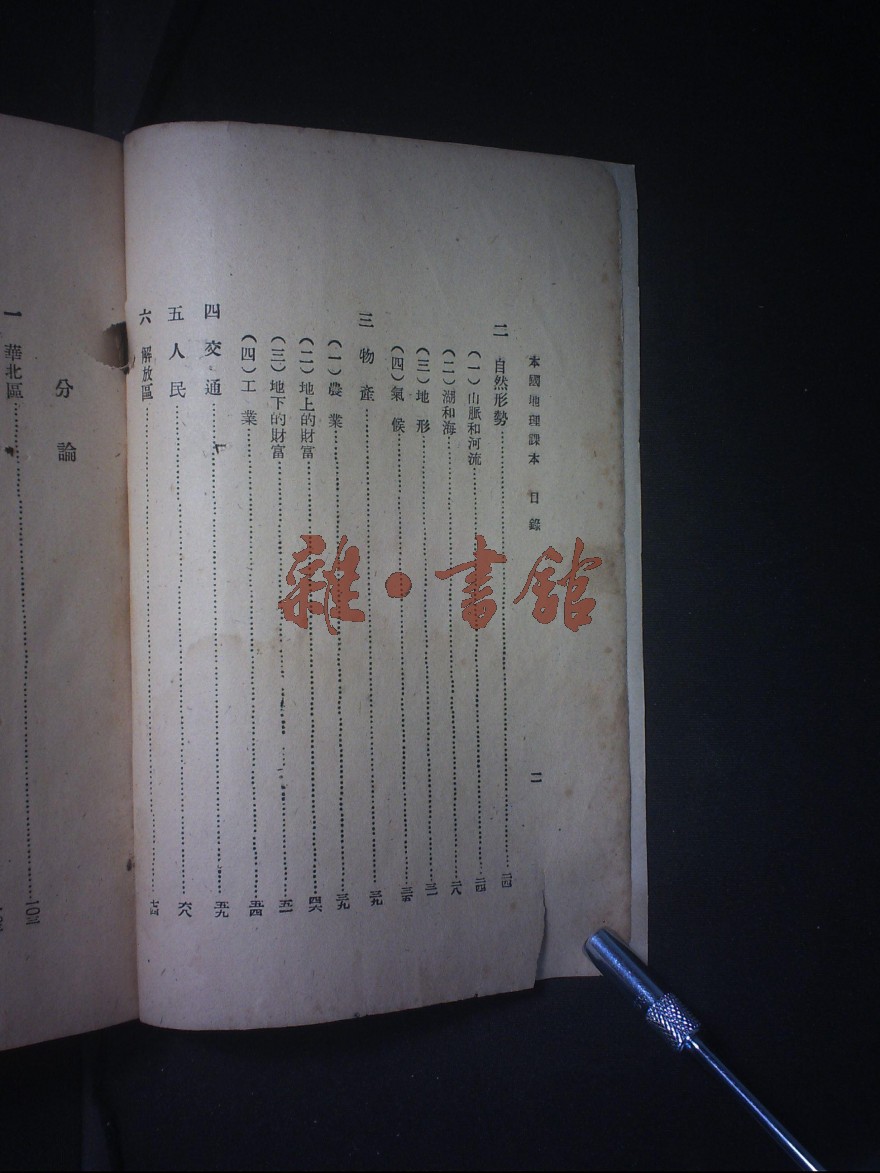 本國地理課本 目錄 二
二 自然形勢 二四
（一）山脈和河流 二四
（二）湖和海 二八
（三）地形 三一
（四）氣候 三五
三 物產 三九
（一）農業 三九
（二）地上的財富 四六
（三）地下的財富 五一
（四）工業 五四
四 交通 五九
五 人民 六八
六 解放區 七四
分論
一 華北區 一〇三
雜·書館